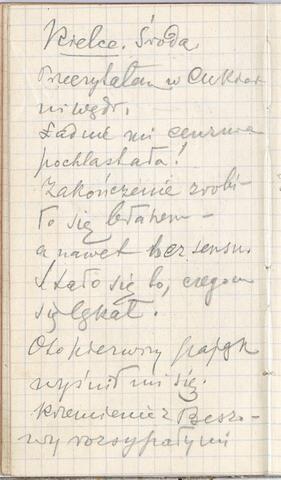 Kielce. Środa
Przeczytałem w Cukier
ni wędr.
Ładnie mi cenzura
pochlastała!
Zakończenie zrobi-
ło się błahem –
a nawet bez sensu.
Stało się to, czegom
się lękał.
Oto pierwszy pająk
wyśnił mi się.
Krzemienie z Besz
wy rozsypały mi